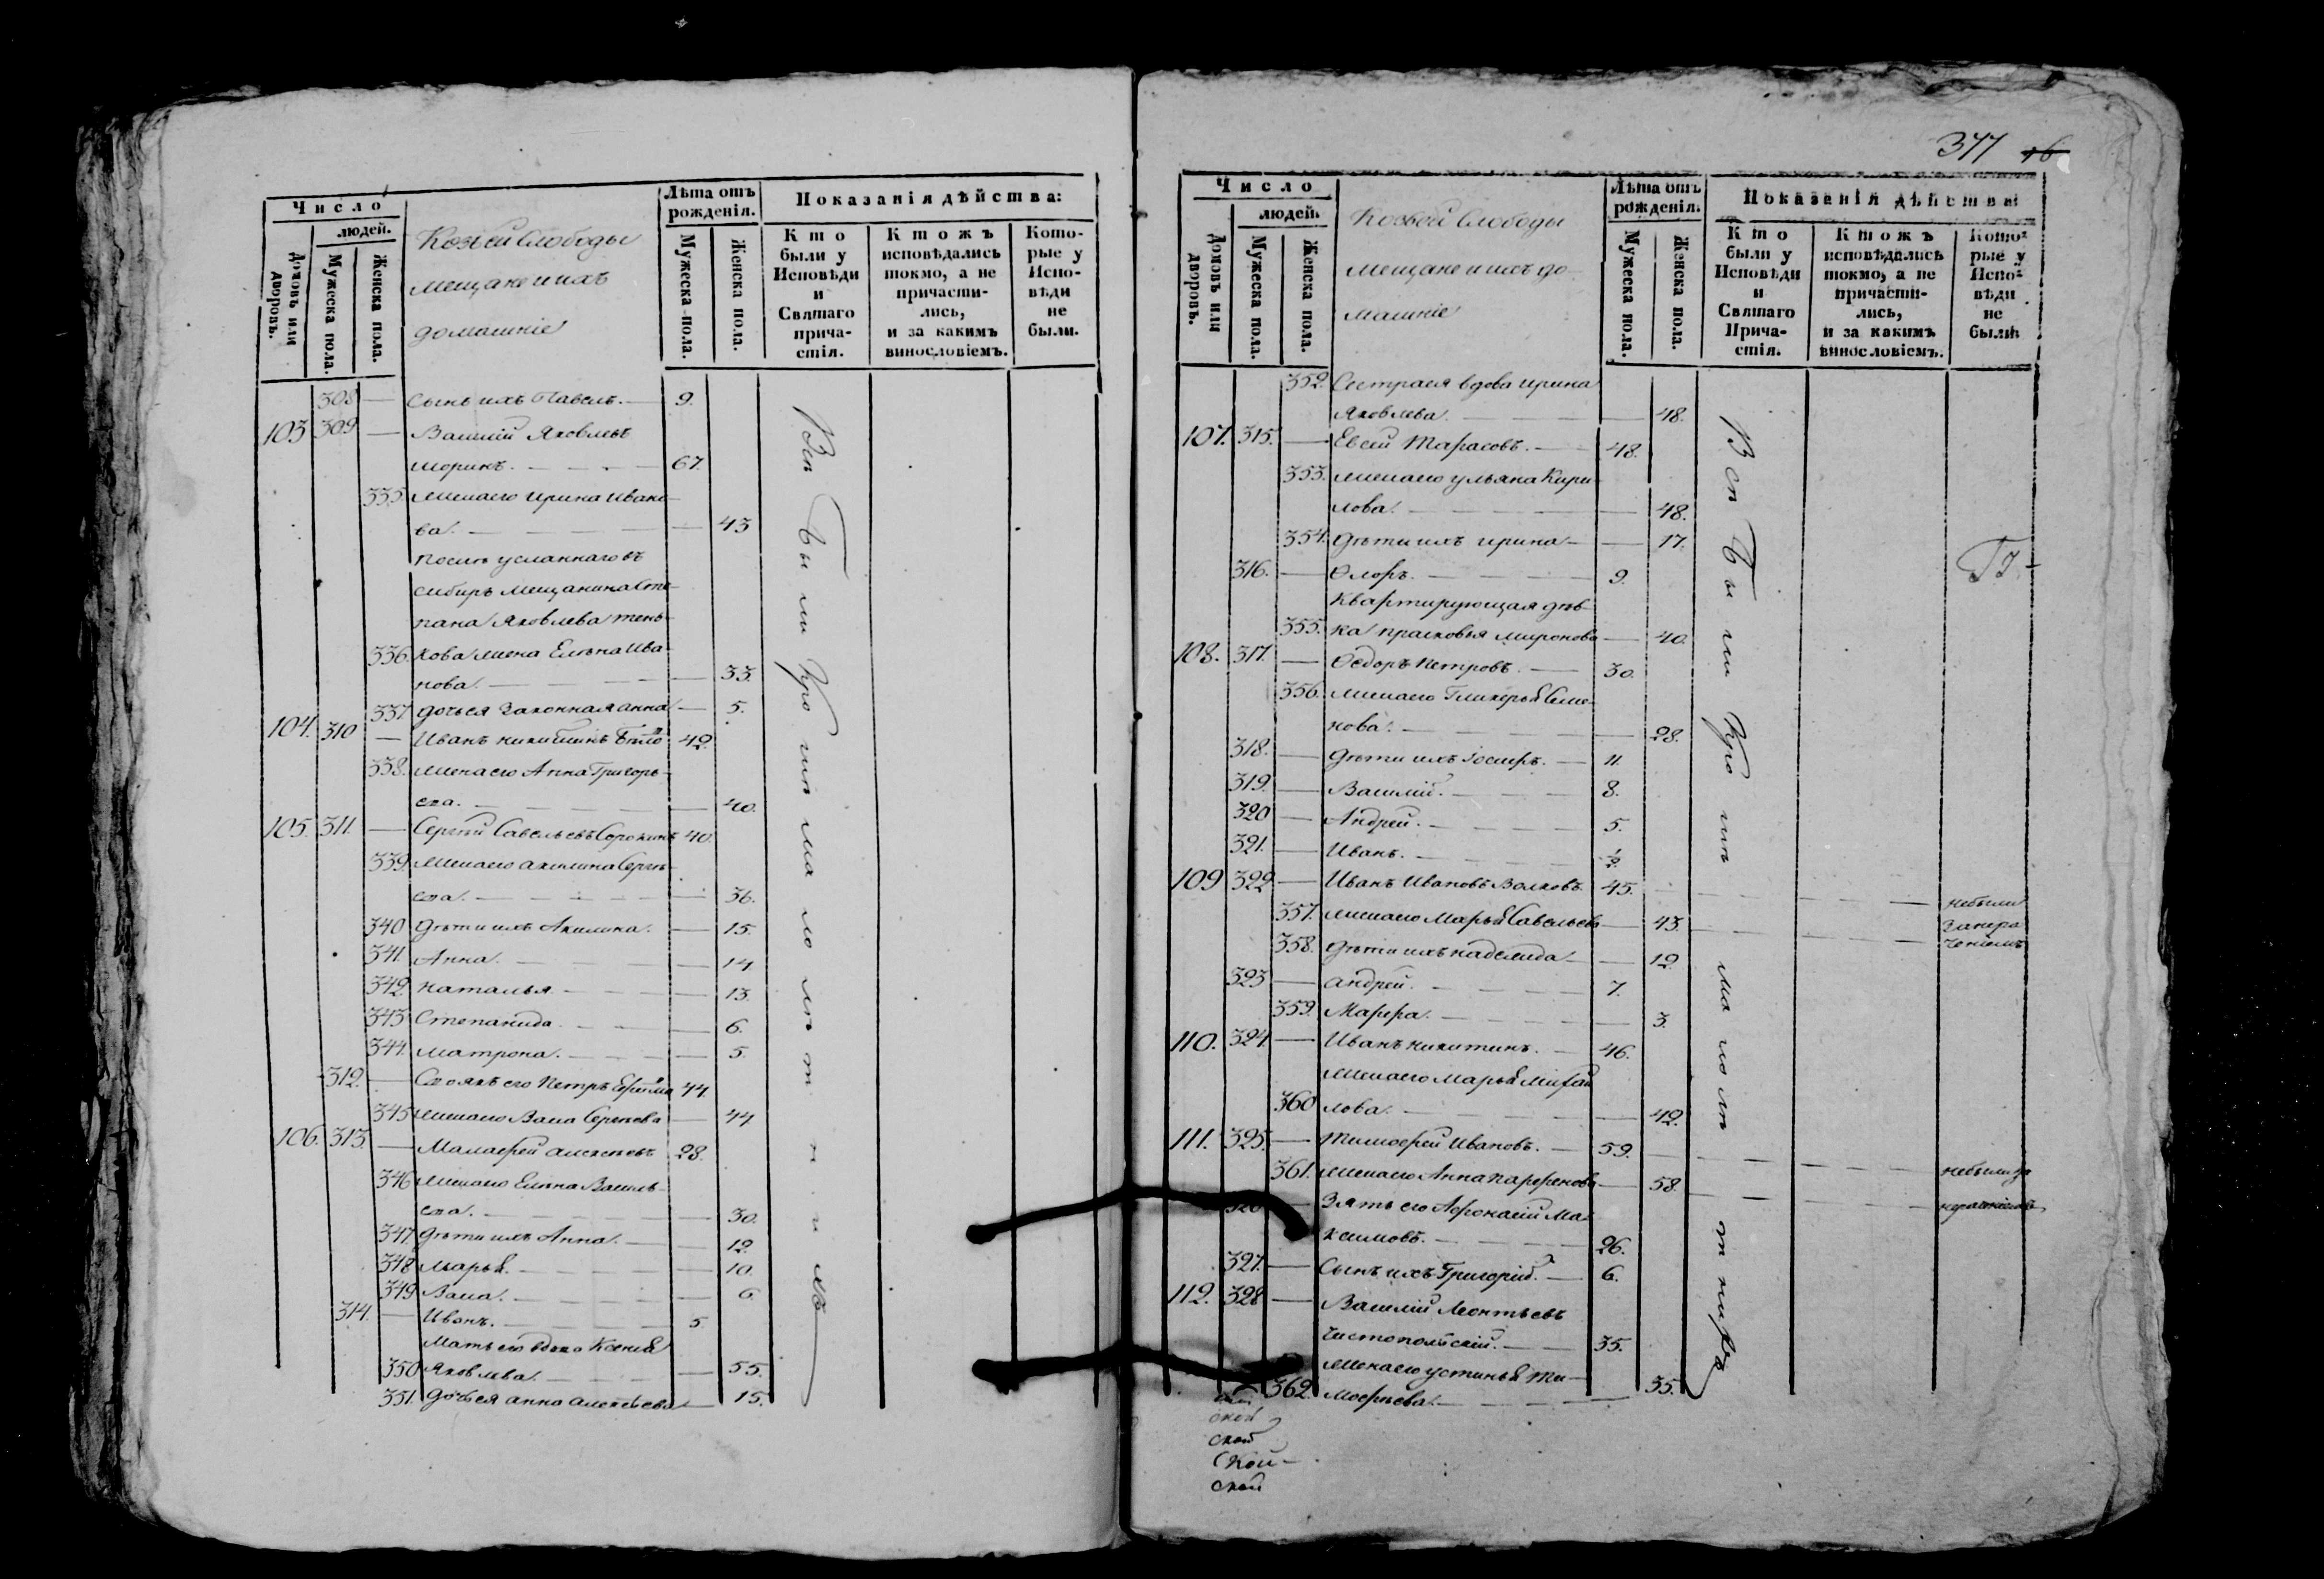 Число
людей.
Домовъ или дворовъ.
Мужеска пола.
Женска пола.
Козьей Слободы
мещане и ихъ
домашніе
Лѣта отъ рожденія.
Мужеска пола.
Женска пола.
Показанія дѣйства:
Кто были у Исповѣди и Святаго причастія.
Ктожъ исповѣдались токмо, а не причастились, и за какимъ винословіемъ.
Которые у Исповѣди не были.
308 — Сынъ ихъ Павелъ. — 9.
103 309 — Василій Яковлевъ
67.
335. жена его Ирина Ивано-
ва. — 43
После усланнаго въ
сибирь мещанина Сте-
пана Яковлева
336. жена Елена Ива-
нова. — 33.
337 дочь ея законная анна — 5.
104. 310 — Иванъ никитинъ 42.
338. жена его Анна Григорь-
ева. — 40.
105. 311. — Сергѣй Савельевъ Сорокинъ 40.
339. жена его акилина Сергѣ-
ева. — 36.
340 дѣти ихъ Акилина. — 15.
341. Анна. — 14.
342. наталья — 13.
343 Степанида. — 6.
344. матрона. — 5.
312. — его Петръ 44.
345 жена его — 44
106. 313. — алексѣевъ 28.
346 жена его Елена Василь-
ева. — 30.
347 дѣти ихъ Анна. — 12.
348 марья. — 10.
349 — 6.
314. — Иванъ. — 5
мать его вдова Ксенія
350 Яковлева. — 55.
351. дочь ея анна алексѣева — 15.
Всѣ были кромѣ малолѣтнихъ
377 16
Число
людей.
Домовъ или дворовъ.
Мужеска пола.
Женска пола.
Козьей Слободы
мещане и ихъ до-
машніе
Лѣта отъ рожденія.
Мужеска пола.
Женска пола.
Показанія дѣйства
Кто были у Исповѣди и Святаго Причастія.
Ктожъ исповѣдались токмо, а не причастились, и за какимъ винословіемъ.
Которые у Исповѣди не были
352. Сестра ея вдова ирина
Яковлева. — 48.
107. 315. — Евсей Тарасовъ. — 48.
353. жена его ульяна Кири-
лова. — 48.
354. дѣти ихъ ирина — 17.
316. — Флоръ. — 9.
Квартирующая дѣв-
355. ка прасковья миронова — 40.
108. 317. — Ѳедоръ Петровъ. — 30.
356. жена его Гликерья Семе-
нова. — 28.
318. — дѣти ихъ Іосифъ. — 11.
319. — Василій. — 8.
320 — Андрей. — 5.
321. — Иванъ. — ½.
109 322 — Иванъ Ивановъ Волковъ. 45. — небыли
357. жена его Марья Савельева — 43. — за нера
358. дѣти ихъ надежда — 12. — ченіемъ
323 — андрей. — 7.
359. Марфа. — 3.
110. 324. — Иванъ никитинъ. — 46.
жена его Марья Михай-
360 лова. — 42.
111. 325. — Тимофей Ивановъ. — 59. — небыли за
361. жена его Анна парфенова — 58. — нерачениемъ
326 — Зять его Афонасій Ма-
ксимовъ. — 26.
327. — Сынъ ихъ Григорій. — 6.
112. 328 — Василій Леонтьевъ
Чистопольскій. — 35.
жена его устинья Ти-
362. мофѣева. — 35.
Всѣ были кромѣ малолѣтнихъ
ской
ской
Скои
ской